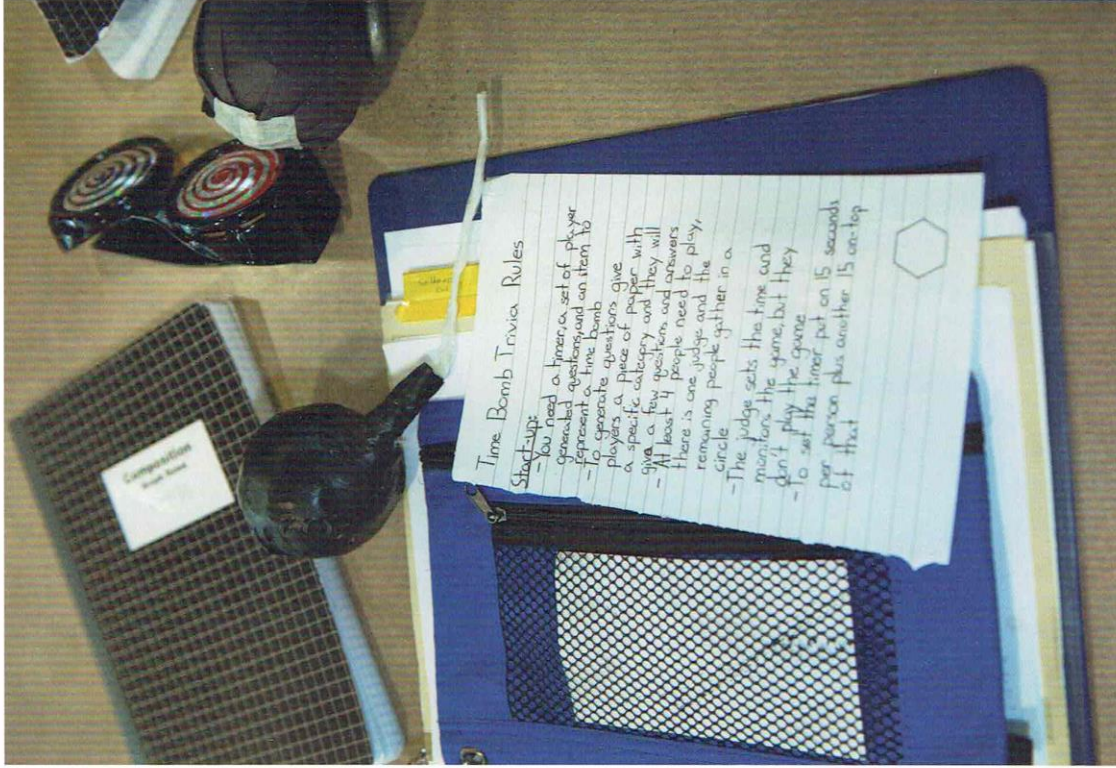 Composition
Time Bomb Trivia Rules
Start-up:
- You need a timer, a set of player
generated questions, and an item to
represent a time bomb
- To generate questions give
players a piece of paper with
a specific category and they will
give a few questions and answers
- At least 4 people need to play,
there is one judge and the
remaining people gather in a
circle
- The judge sets the time and
monitors the game, but they
don't play the game
- To set the timer put on 15 seconds
per person plus another 15 on-top
of that